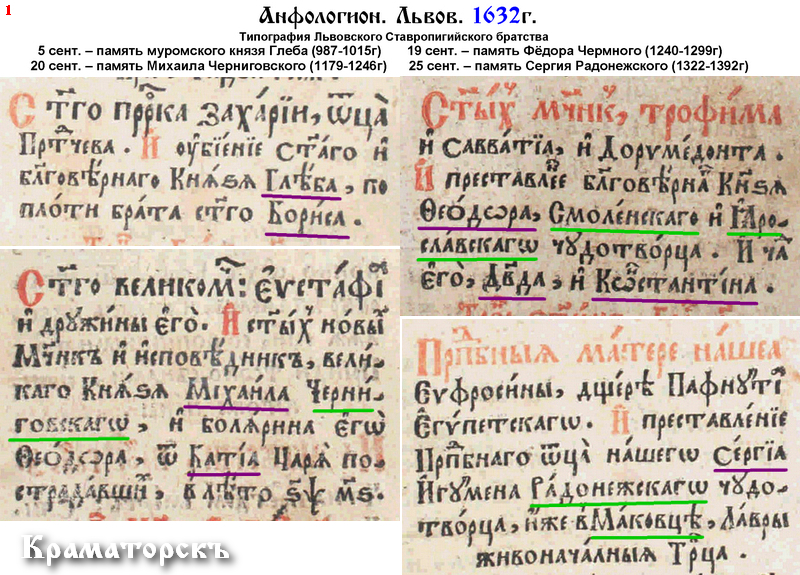 1
Анфологион. Львов. 1632г.
Типография Львовского Ставропигийского братства
5 сент. – память муромского князя Глеба (987-1015г)
19 сент. – память Фёдора Чермного (1240-1299г)
20 сент. – память Михаила Черниговского (1179-1246г)
25 сент. – память Сергия Радонежского (1322-1392г)
Ст҃го прⷪ҇рка Заха́рїи, ѿца̀
Прⷣтчева. И҆ ѹ҆бїе́нїе ст҃а́го и҆
бл҃гове́рнаго Кнѧ́ѕѧ Гле́ба, по
пло́ти бра́та ст҃го Бори́са.
Ст҃го великом҃: Еѵста́фїѧ
и҆ дрꙋжи́ны є҆гѡ̀. И҆ ст҃ы́хъ но́вы
Мч҃никъ и҆ и҆сповѣ́дникъ, вели́-
каго Кнѧ́ѕѧ Мїхаи́ла Черни́-
говскагѡ, и҆ болѧ́рина є҆гѡ̀
Ѳео́дѡра, ѿ Батїа Царѧ̀ по-
страда́вши, в лѣ́то ѕѱ҃м҃ѕ.
Ст҃ы́хъ мч҃нкъ, трофи́ма
и҆ савва́тїа, и҆ Дорѵме́донта.
И҆ преставле́нїе бл҃гове́рна Кн҃ѕѧ
Ѳео́дѡра, Смоле́нскаго и҆ Ꙗ҆ро-
сла́вскагѡ чꙋдотво́рца. И҆ ча̑
є҆гѡ̀, Дв҃да, и҆ Кѡнстанті́на.
Прпⷣбныѧ ма́тере на́шеѧ
Еѵфроси́ны, дщерѐ Пафнꙋ́тїѧ
Е҆гѵ́петскагѡ. И҆ преставле́нїе
Прпⷣбнаго ѿца̀ на́шегѡ Се́ргїа
И҆гꙋ́мена Ра́донежскагѡ чꙋдо-
тво́рца, и҆́же в Ма́ковцѣ, Ла́вры
живонача́лныѧ Трⷪ҇ца.
Краматорскъ